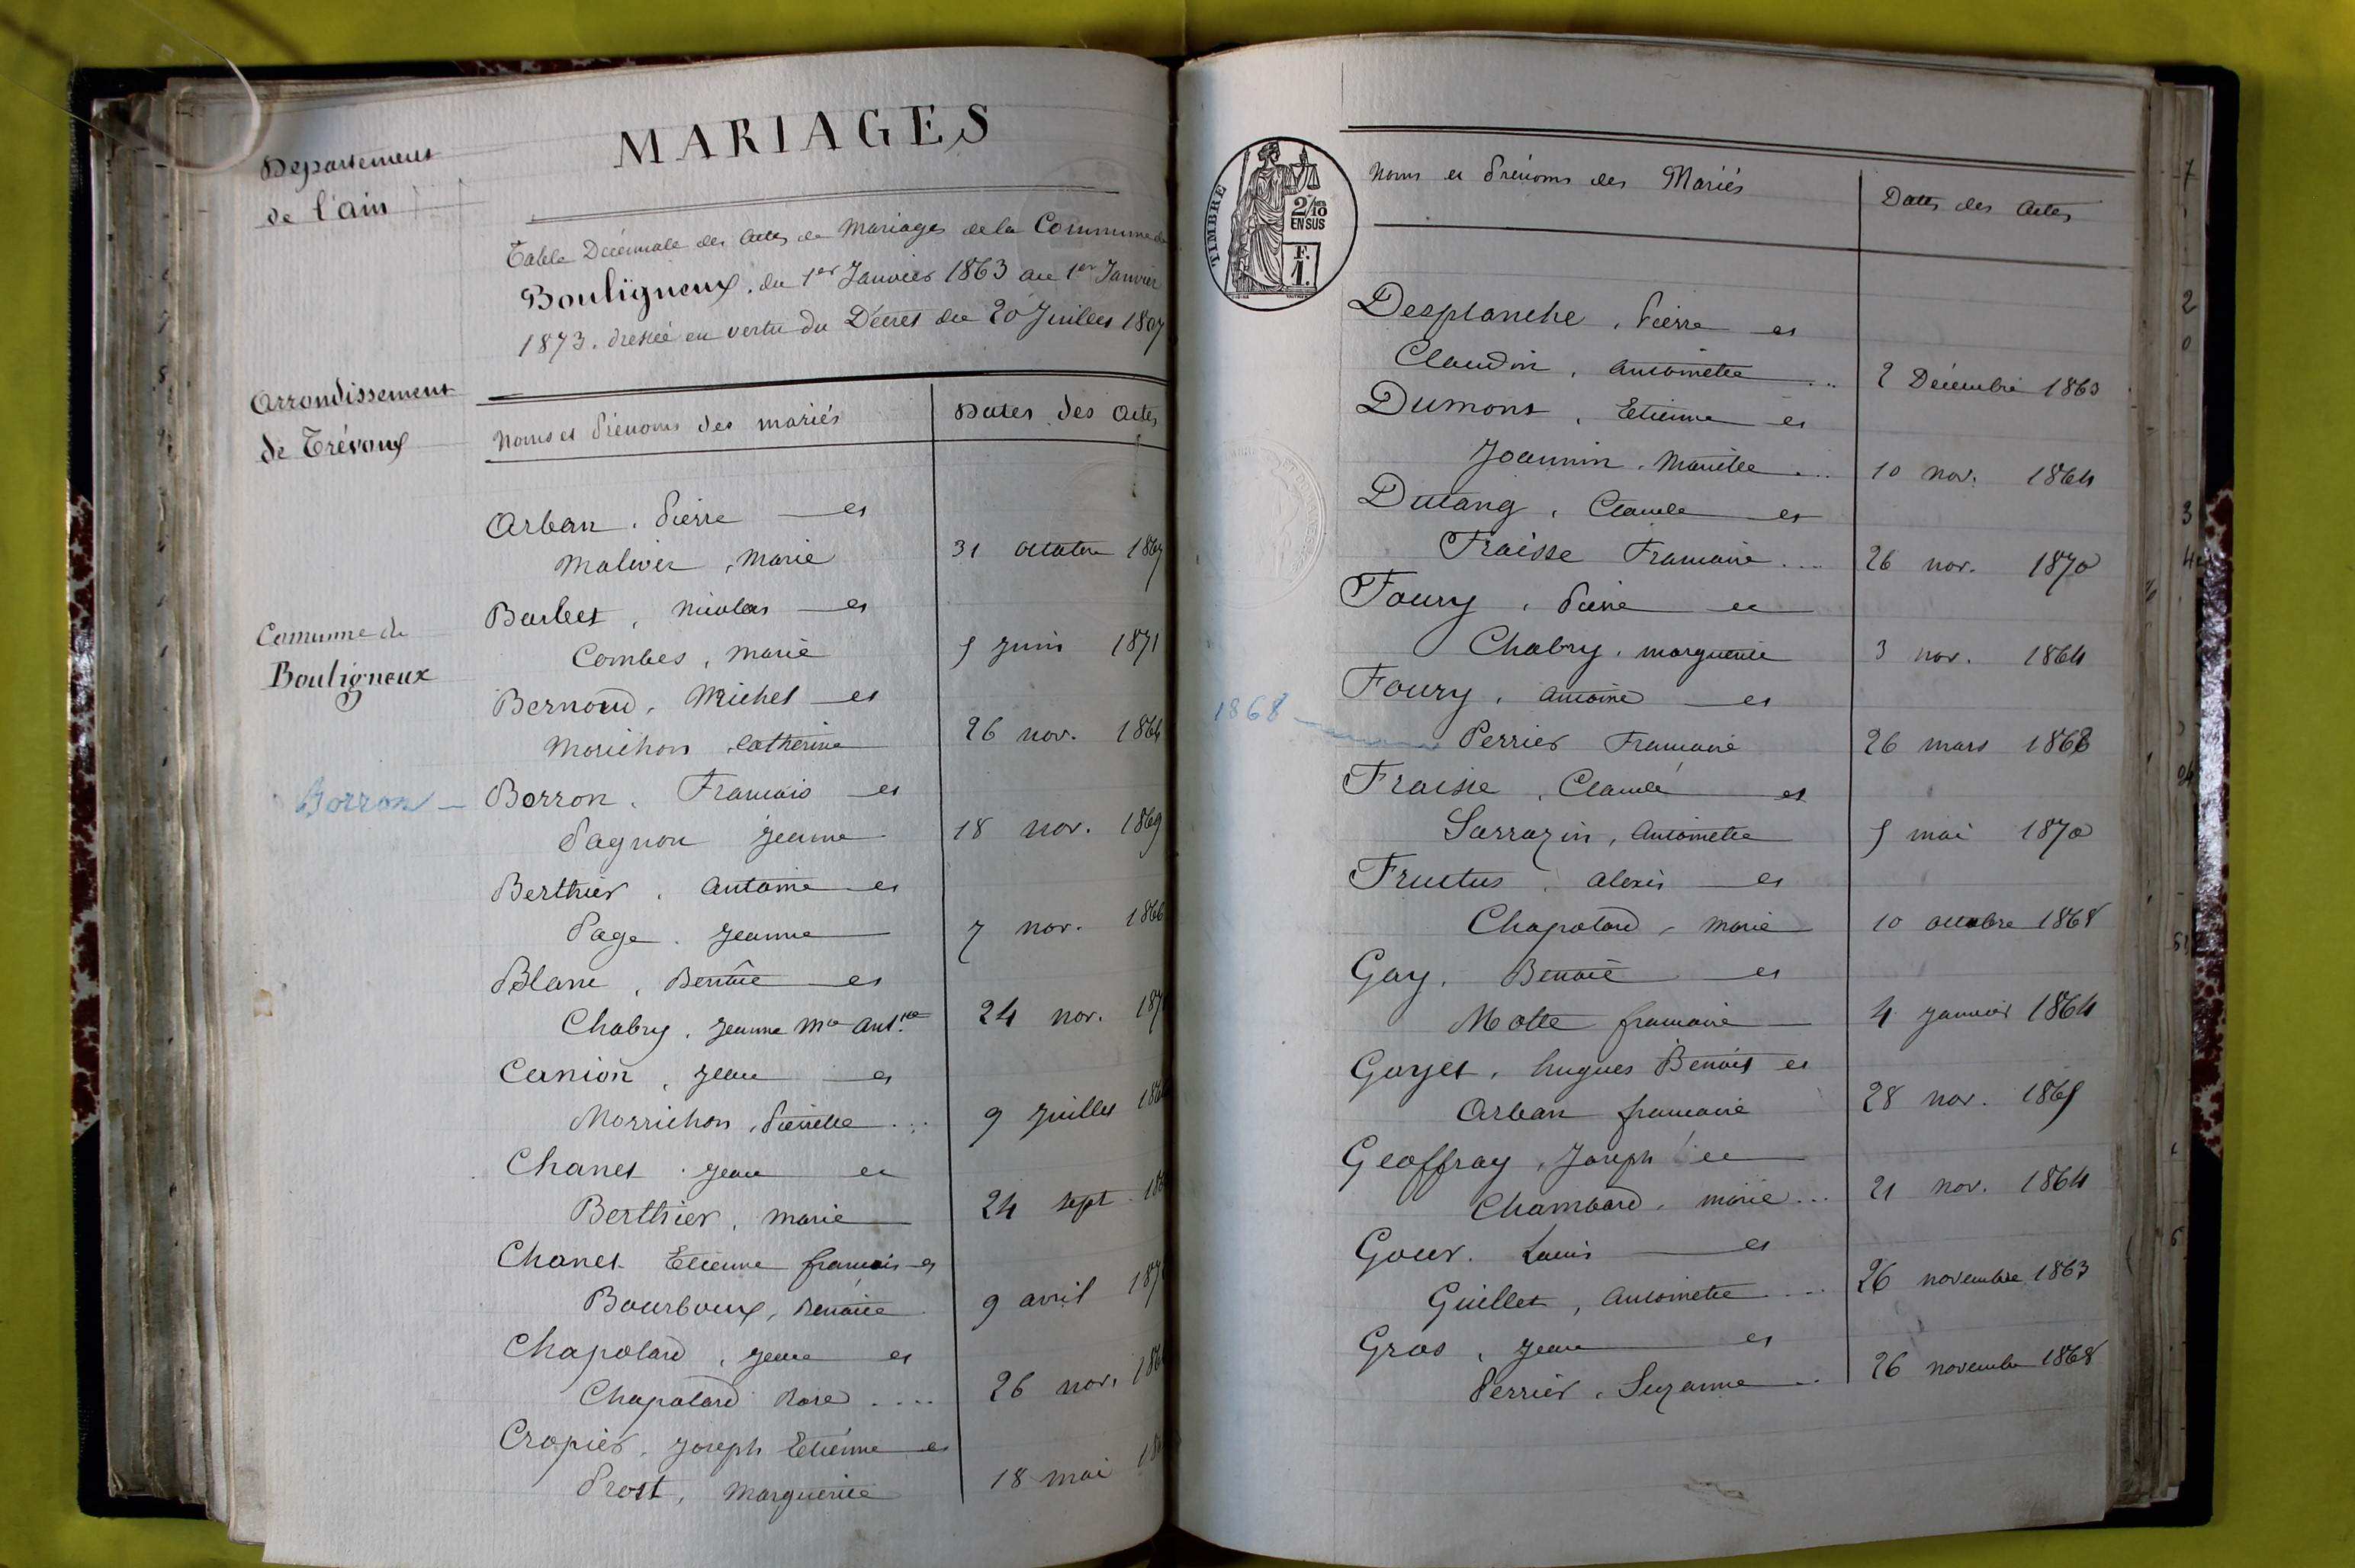 MARIAGES
Departement
de l'ain
Table Décennale des actes de Mariages de la Commune de
Bouligneux, du 1er Janvier 1863 au 1er Janvier
1873. dressée en vertu du Décret du 20 Juillet 1807
Arrondissement
de Trévoux
Commune de
Bouligneux
Noms et Prénoms des mariés Dates des actes
Arban, Pierre et
Malivet, Marie 31 octobre 1867
Barbet, Nicolas et
Combes, Marie 5 Juin 1871
Bernoud, Michel et
Morichon Catherine 26 nov. 1864
Borron
Borron, Francois et
Pagnon Jeanne 18 nov. 1869
Berthier, Antoine et
Page, Jeanne 7 nov. 1866
Blanc, Benoît et
Chabry, Jeanne Mie Ant.tte 24 nov. 187
Canion, Jean et
Morrichon, Pierrette ... 9 Juillet 186
Chanel, Jean et
Berthier, Marie 24 sept. 186
Chanel Etienne francois et
Bourboux, Benoite 9 avril 187
Chapolard, Jean et
Chapolard Rose .... 26 nov. 186
Cropier, Joseph Etienne et
Prost, Marguerite 18 mai 18
TIMBRE
2/10
EN SUS
F.
1.
Noms et Prénoms des Mariés Dates des actes
Desplanche, Pierre et
Claudin, Antoinette ... 2 Décembre 1863
Dumont, Etienne et
Joannin, Mariette ... 10 nov. 1864
Dutang, Claude et
Fraisse Francoise ... 26 nov. 1870
Foury, Pierre et
Chabry, marguerite 3 nov. 1864
Foury, Antoine et
1868
Perrier Francoise 26 mars 1868
Fraisse, Claude et
Sarrazin, Antoinette 5 mai 1870
Fructus, Alexis et
Chapolard, Marie 10 octobre 1868
Gay, Benoit et
Motte francoise 4 Janvier 1864
Goyet, hugues Benoit et
Arban francoise 28 nov. 1865
Geoffray, Joseph et
Chambard, Marie ... 21 nov. 1864
Gour, Louis et
Guillet, Antoinette ... 26 novembre 1863
Gros, Jean et
Perrier, Suzanne .. 26 novembre 1868